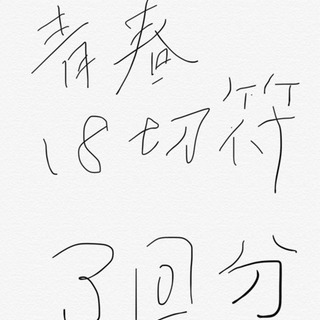 青春
18切符
3回分